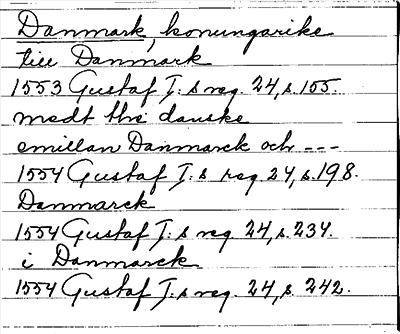 Danmark, konungarike
till Danmark
1553 Gustaf I:s reg. 24, s. 155.
medt the danske
emillan Danmarck och ---
1554 Gustaf I:s reg 24, s. 198.
Danmarck
1554 Gustaf I:s reg. 24, s. 234.
i Danmarck
1554 Gustaf I:s reg. 24, s. 242.